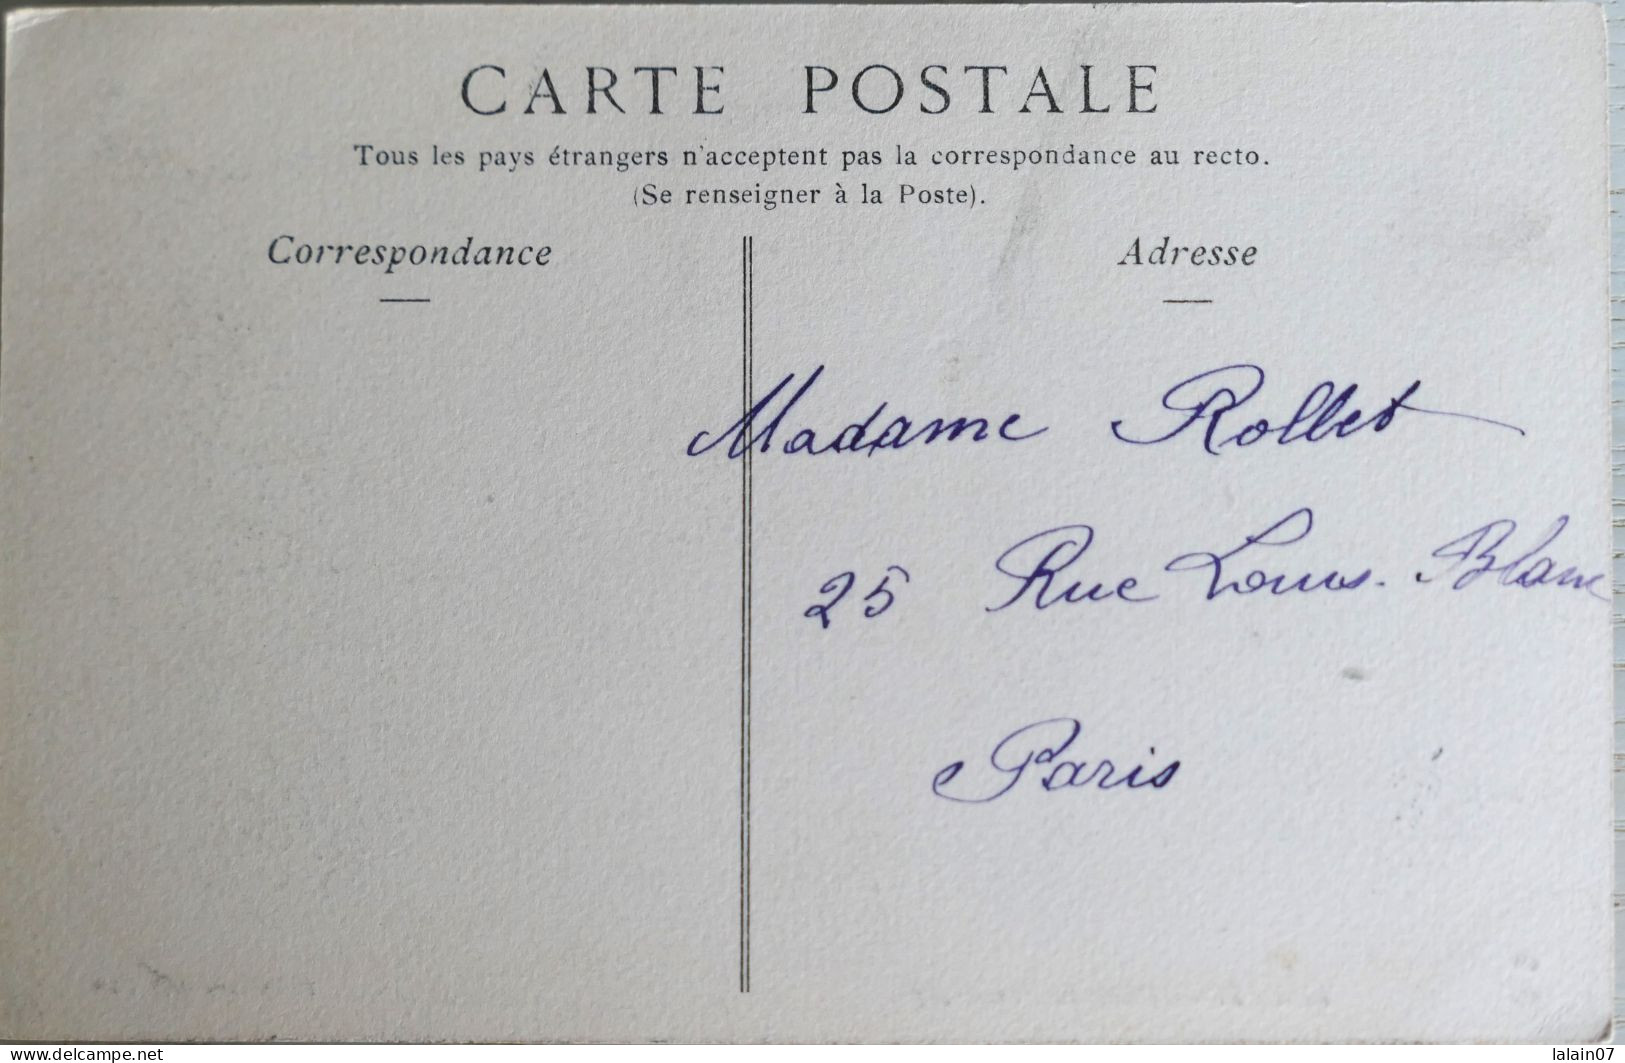 CARTE POSTALE
Tous les pays étrangers n'acceptent pas la correspondance au recto.
(Se renseigner à la Poste).
Correspondance
Adresse
Madame Rollet
25 Rue Louis. Blanc
Paris
delcampe.net
lalain07